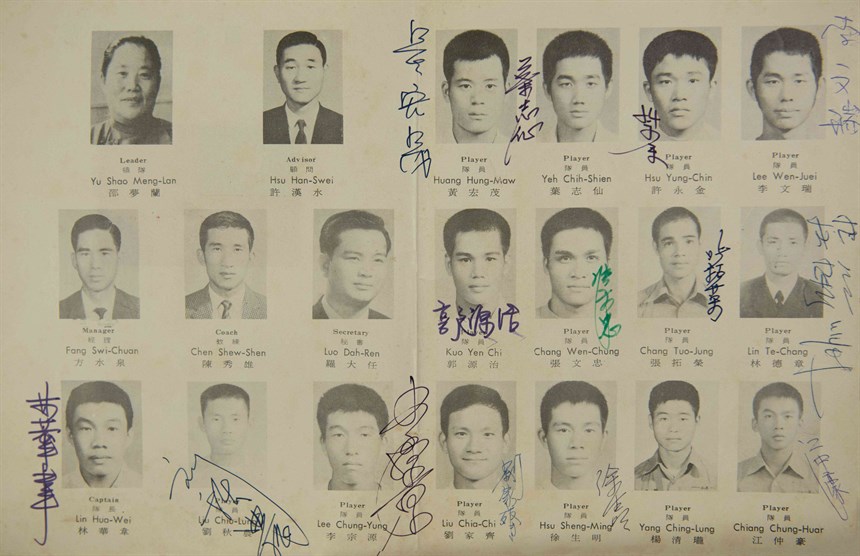 Leader
領隊
Yu Shao Meng-Lan
邵夢蘭
Advisor
顧問
Hsu Han-Swei
許漢水
Player
隊員
Huang Hung-Maw
黃宏茂
Player
隊員
Yeh Chih-Shien
葉志仙
Player
隊員
Hsu Yung-Chin
許永金
Player
隊員
Lee Wen-Juei
李文瑞
葉志仙
Manager
經理
Fang Swi-Chuan
方水泉
Coach
教練
Chen Shew-Shen
陳秀雄
Secretary
秘書
Luo Dah-Ren
羅大任
郭源治
Kuo Yen Chi
郭源治
Player
隊員
Chang Wen-Chung
張文忠
Player
隊員
Chang Tuo-Jung
張拓榮
Player
隊員
Lin Te-Chang
林德章
Captain
隊長
Lin Hua-Wei
林華韋
Player
隊員
Liu Chiu-Lung
劉秋
Player
隊員
Lee Chung-Yung
李宗源
Player
隊員
Liu Chia-Chi
劉家齊
Player
隊員
Hsu Sheng-Ming
徐生明
Player
隊員
Yang Ching-Lung
楊清瓏
Player
隊員
Chiang Chung-Huar
江仲豪